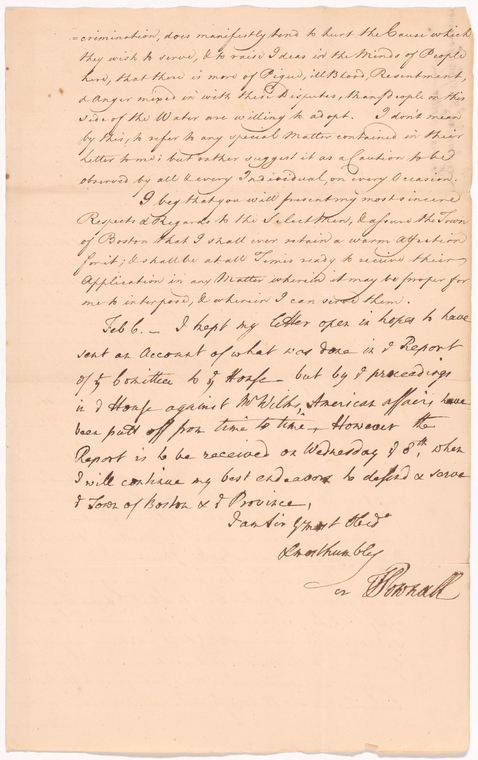 -crimination, does manifestly tend to hurt the Cause which
they wish to serve, & to raise Ideas in the Minds of People
here, that there is more of Pique, ill Blood, Resentment,
& Anger mixed in with these Disputes, than People on this
side of the Water are willing to adopt. I don't mean
by this, to refer to any special Matter contained in their
Letter to me: but rather suggest it as a Caution to be
observed by all & every Individual, on every Occasion.
I beg that you will present my most sincere
Respects & Regards to the Select Men, & assure the Town
of Boston that I shall ever retain a warm Affection
for it; & shall be at all Times ready to receive their
Application in any Matter wherein it may be proper for
me to interpose, & wherein I can serve them.
Feb 6. — I kept my letter open in hopes to have
sent an Account of what was done in ye Report
of ye Comittee to ye House — but by ye proceedings
in ye House against Mr Wilks, American affairs have
been putt off from time to time — However the
Report is to be received on Wednesday ye 8th, when
I will continue my best endeavors to defend & serve
ye Town of Boston & ye Province,
I am Sir Yr most Obedt
& most humble
sr TPownall